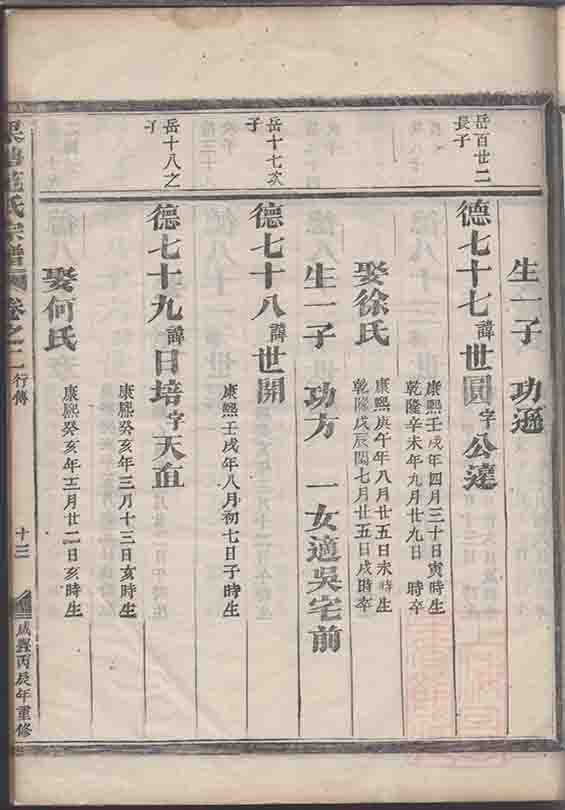 生一子 功遜
岳百廿二長子
德七十七 諱 世圓 字 公達
康熙壬戌年四月三十日寅時生
乾隆辛未年九月廿九日 時卒
娶徐氏
康熙庚午年八月廿五日未時生
乾隆戊辰閏七月廿五日戌時卒
生一子 功方 一女適吳宅前
岳十七次子
德七十八 諱 世開
康熙壬戌年八月初七日子時生
岳十八之子
德七十九 諱 日培 字 天
康熙癸亥年三月十三日亥時生
娶何氏
康熙癸亥年十二月廿二日亥時生
氏宗譜 卷之二 行傳 十三 咸豐丙辰年重修